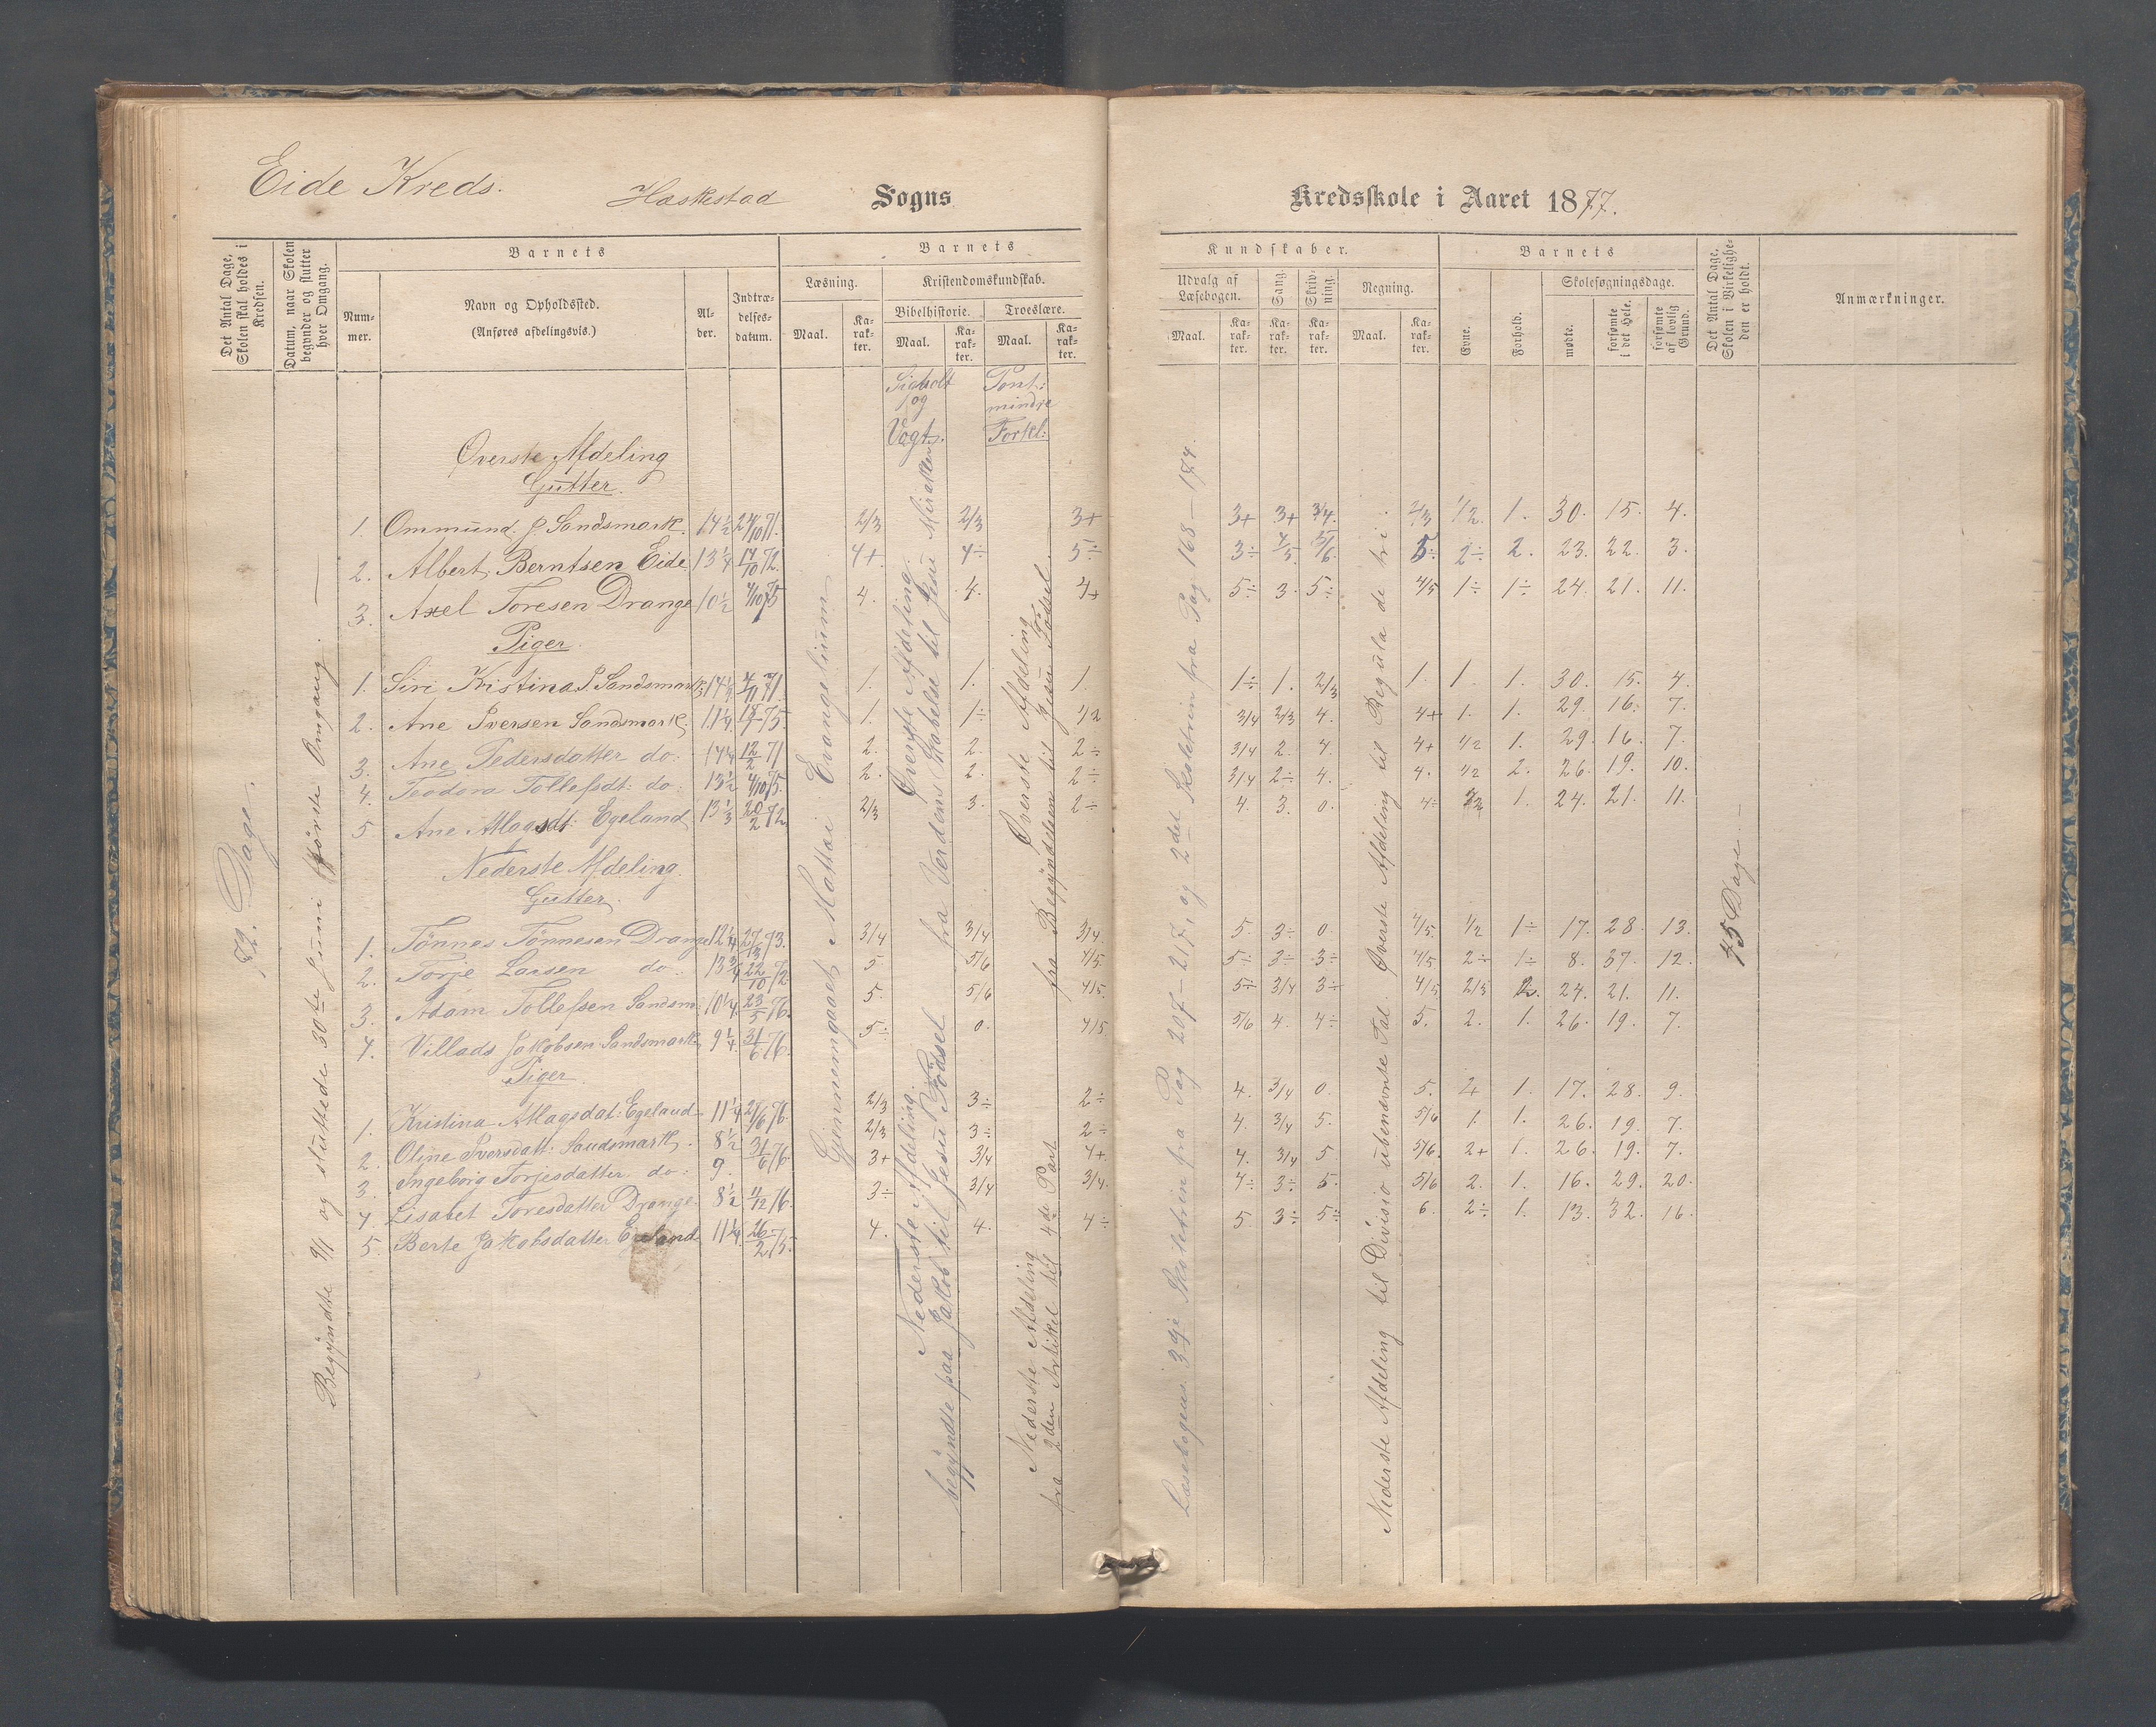 Eide Kreds.
Haskestad Sogns
Kredsskole i Aaret 1877.
Det Antal Dage, Skolen skal holdes i Kredsen.
Datum, naar Skolen begynder og slutter hver Omgang.
Barnets
Nummer.
Navn og Opholdssted.
(Anføres afdelingsvis.)
Alder.
Indtrædelsesdatum.
Barnets
Læsning.
Maal.
Karakter.
Kristendomskundskab.
Bibelhistorie.
Maal.
Karakter.
Troeslære.
Maal.
Karakter.
Kundskaber.
Udvalg af Læsebogen.
Maal.
Karakter.
Sang.
Karakter.
Skrivning.
Karakter.
Regning.
Maal.
Karakter.
Barnets
Evne.
Forhold.
Skolesøgningsdage.
mødte.
forsømte i det Hele.
forsømte af lovlig Grund.
Det Antal Dage, Skolen i Virkeligheden er holdt.
Anmærkninger.
og
Vogts.
Forkl:
72. Dage.
Begyndte 9/1 og sluttede 30te Juni første Omgang. —
Gjennemgaaet Mattæi Evangelium
Øverste Afdeling
fra Verdens Skabelse til Jesu Mirakler
Nederste Afdeling
begyndte paa Jakob til Jesu Fødsel
Øverste Afdeling
fra Begyndelsen til Jesu Fødsel
Nederste Afdeling
fra 2den Artikel til 4de Part
Læsebogens 3dje Skoletrin fra Pag 207-217, og 2det Skoletrin fra Pag 168-174.
Øverste Afdeling til Regula de tri.
Nederste Afdeling til Divisio ubenævnte Tal.
45 Dage —
Øverste Afdeling
Gutter.
1. Ommund P. Sandsmark. 14½ 24/10 71. 2/3 2/3 3+ 3+ 3+ 3/4. 2/3 1/2. 1. 30. 15. 4.
2. Albert Berntsen Eide 13¼ 14/10 72. 4+ 4÷ 5÷ 3÷ 4/5 5/6. 5÷ 2÷ 2. 23. 22. 3.
3. Axel Toresen Drange 10½ 4/10 75 4. 4. 4+ 5÷ 3. 5÷ 4/5 1÷ 1÷ 24. 21. 11.
Piger.
1. Siri Kristina P. Sandsmark 14½ 4/11 71. 1. 1. 1. 1÷ 1. 2/3 1. 1. 1. 30. 15. 4.
2. Ane Iversen Sandsmark. 11¼ 75. 1. 1÷ 1/2 3/4 2/3 4. 4+ 1. 1. 29. 16. 7.
3. Ane Pedersdatter do: 14¼ 12/2 71 2. 2. 2÷ 3/4 2. 4. 4+ 1/2 1. 29. 16. 7.
4. Teodora Tollefsdt: do: 13½ 4/10 75. 2. 2. 2÷ 3/4 2÷ 4. 4. 1/2 2. 26. 19. 10.
5. Ane Atlagsdt: Egeland 13⅓ 20/2 72 2/3 3. 2÷ 4. 3. 0. 4÷ 1. 24. 21. 11.
Nederste Afdeling.
Gutter.
1. Tønnes Tønnesen Drange 12¼ 73. 3/4 3/4 3/4. 5. 3÷ 0. 4/5. 1/2 1÷ 17. 28. 13.
2. Torje Larsen do: 13¾ 22/10 72 5 5/6 4/5. 5÷ 3÷ 3÷ 4/5 2÷ 1÷ 8. 37. 12.
3. Adam Tollefsen Sandsm: 10¼ 23/5 76. 5. 5/6 4/5. 5÷ 3/4 3÷ 4/5 2/3 2. 24. 21. 11.
4. Villads Jakobsen Sandsmark 9¼ 31/6 76. 5÷ 0. 4/5 5/6 4. 4÷ 5. 2. 1. 26. 19. 7.
Piger
1. Kristina Atlagsdat: Egeland 11¼ 76. 2/3 3÷ 2÷ 4. 3/4 0. 5. 2+ 1. 17. 28. 9.
2. Oline Iversdatt: Sandsmark. 8½ 31/6 76 2/3 3÷ 2÷ 4. 3/4 5. 5/6 1. 1. 26. 19. 7.
3. Ingeborg Torjesdatter do: 9. 3+ 3/4 4+ 4. 3/4 5 5/6. 2+ 1. 26. 19. 7.
4. Lisabet Toresdatter Drange 8½ 11/12 76. 3÷ 3/4 3/4. 4÷ 3÷ 5. 5/6 2. 1. 16. 29. 20.
5. Berte Jakobsdatter Egeland 11¼ 26/2 75. 4. 4. 4÷ 5 3÷ 5÷ 6. 2÷ 1. 13. 32. 16.